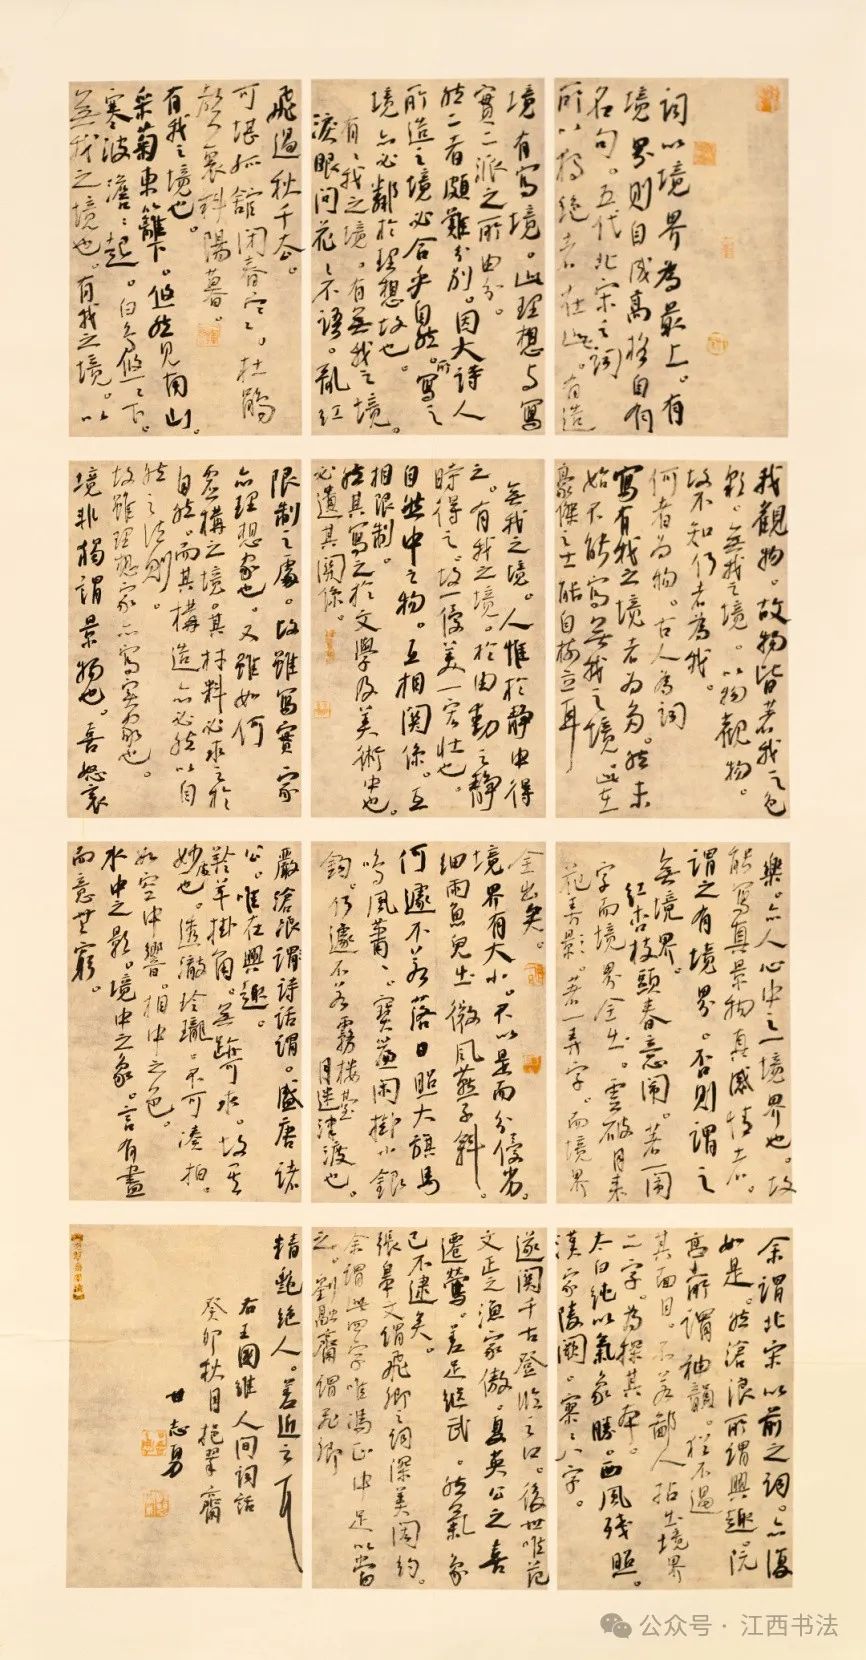 词以境界為最上。有
境界则自成高格自有
名句。五代北宋之词
所以独绝者在此。有造
境有寫境。此理想与寫
實二派之所由分。
然二者颇難分别。因大詩人
所造之境必合乎自然。所寫之
境亦必鄰於理想故也。
有有我之境。有無我之境。
淚眼问花花不語。亂红
飛過秋千去。
可堪孤館闭春寒。杜鵑
聲裏斜陽暮。
有我之境也。
采菊東籬下。悠然见南山。
寒波澹澹起。白鸟悠悠下。
無我之境也。有我之境。以
我觀物。故物皆著我之色
彩。無我之境。以物觀物。
故不知何者為我。
何者為物。古人為詞
寫有我之境者为多。然未
始不能寫無我之境。此在
豪傑之士能自樹立耳
無我之境。人惟於静中得
之。有我之境。於由動之静
時得之。故一優美一宏壮也。
自然中之物。互相関係。互
相限制。
然其寫之於文學及美術中也。
必遺其関係。
限制之處。故雖寫實家
亦理想家也。又雖如何
虚構之境。其材料必求之於
自然。而其構造亦必从自
然之法則。
故雖理想家亦寫实家也。
境非獨謂景物也。喜怒哀
樂。亦人心中之一境界也。故
能寫真景物真感情者。
謂之有境界。否则謂之
無境界。
红杏枝頭春意闹。著一闹
字而境界全出。雲破月来
花弄影。著一弄字。而境界
全出矣。
境界有大小。不以是而分優劣。
细雨魚兒出微風燕子斜。
何遽不若落日照大旗馬
鸣風蕭蕭。寶簾闲掛小銀
鈎。何遽不若霧失樓臺
月迷津渡也。
嚴滄浪詩話謂。盛唐諸
公。唯在興趣。
羚羊掛角。無跡可求。故其
妙處。透澈玲瓏。不可凑拍。
如空中響。相中之色。
水中之影。境中之象。言有盡
而意無窮。
余謂北宋以前之词。亦復
如是。然滄浪所謂興趣。阮
亭所謂神韻。猶不過
其面目。不若鄙人拈出境界
二字。為探其本。
太白純以氣象勝。西風残照。
漢家陵阙。寥寥八字。
遂関千古登临之口。後世唯范
文正之漁家傲。夏英公之喜
遷鶯。差足继武。然氣象
已不逮矣。
張皋文謂飛卿之词深美闳约。
余謂此四字唯馮正中足以當
之。劉融齋謂飛卿
精艷絕人。差近之耳
右王國維人间词話
癸卯秋月挹翠齋
甘志勇
公众号·江西书法